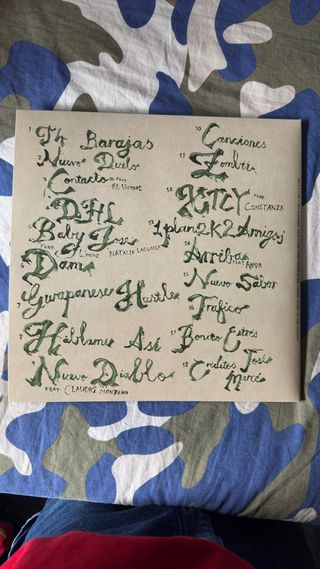 1 T4 Barajas
2 Nuevo Duelo
3 Contacto FEAT.
EL VIRTUAL
4 DHL
5 Baby José
FEAT. L'HAINE NATALIA LACUNZA
6 Dame
7 Guapanese Hustle
8 Háblame Así
9 Nuevo Diablo
FEAT CLAUDIO MONTANA
10 Canciones
11 Zombie
12 XITCY FEAT
CONSTANZA
13 1plan2K2Amigos
14 Arriba
FEAT ROROR
15 Nuevo Sabor
16 Tráfico
17 Bonito Estrés
18 Créditos José
Mercé